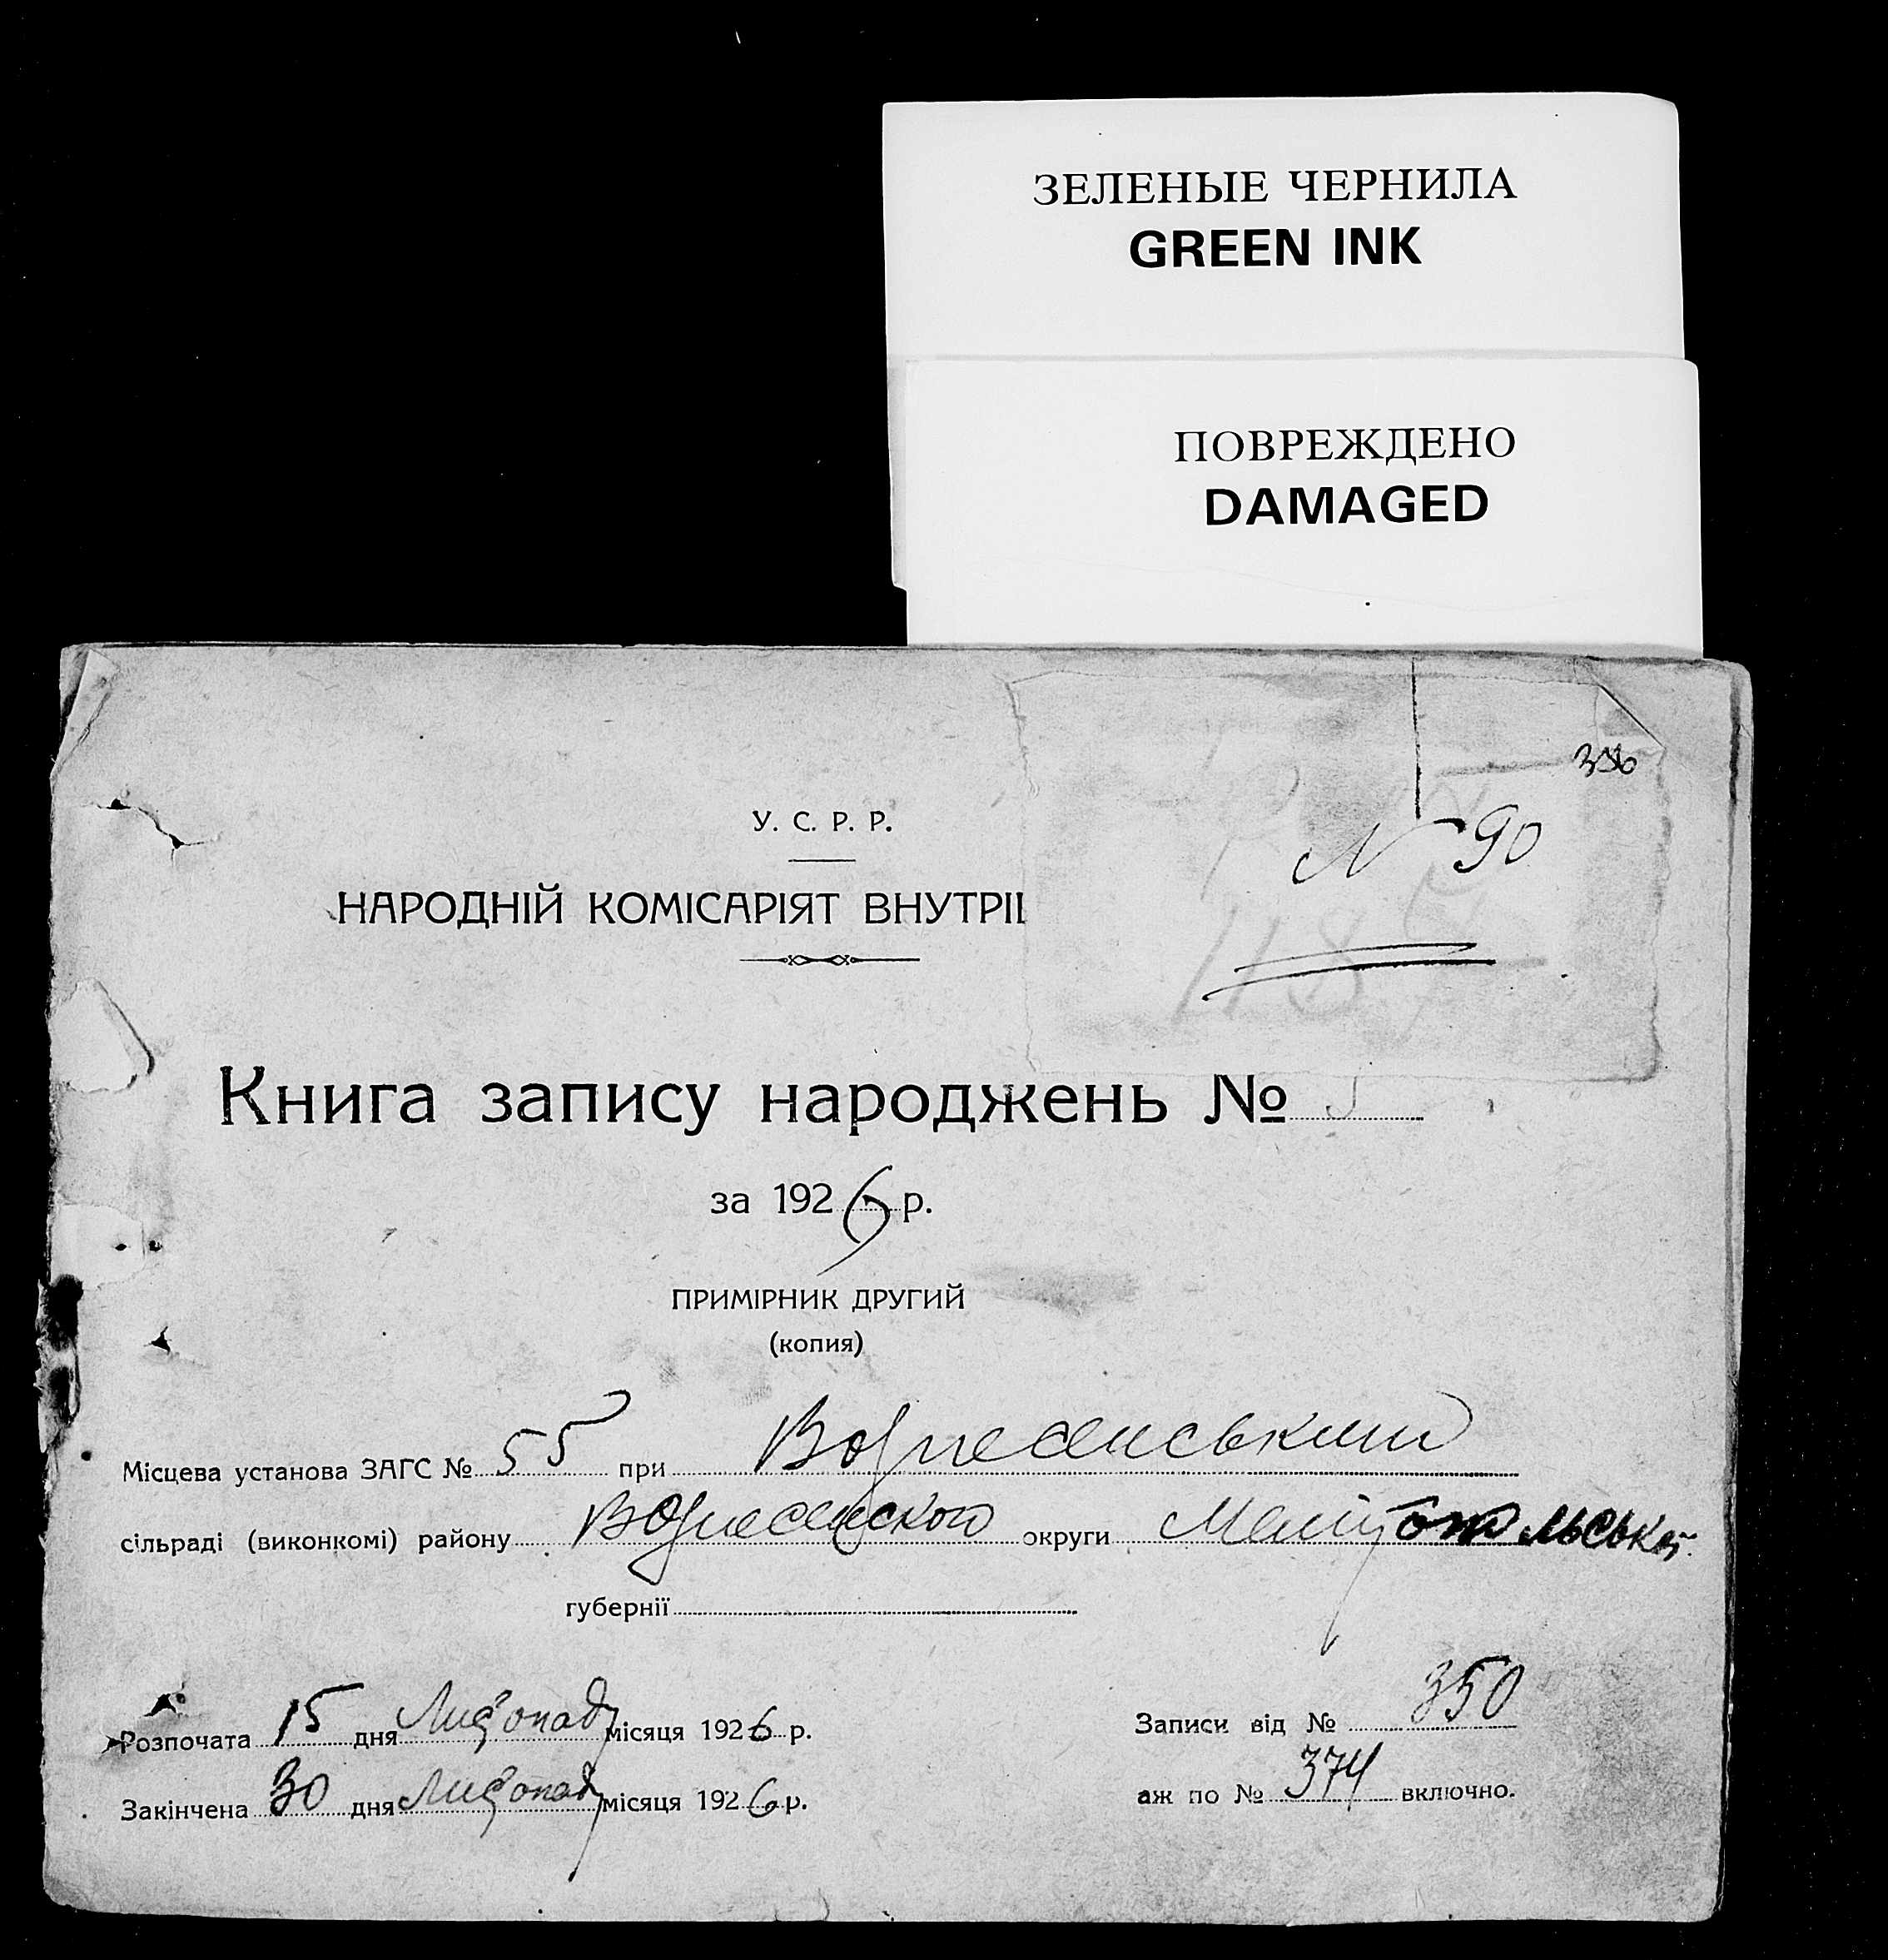 ЗЕЛЕНЫЕ ЧЕРНИЛА
GREEN INK
ПОВРЕЖДЕНО
DAMAGED
У. С. Р. Р.
N 90
НАРОДНІЙ КОМІСАРІЯТ ВНУТРІ
Книга запису народжень №
за 1926 р.
ПРИМІРНИК ДРУГИЙ
(копия)
Місцева установа ЗАГС № 55 при Вознесенським
сільраді (виконкомі) району Вознесенского округи Мелітопільської
губернії
Розпочата 15 дня Листопада місяця 1926 р.
Закінчена 30 дня Листопада місяця 1926 р.
Записи від № 350
аж по № 374 включно.